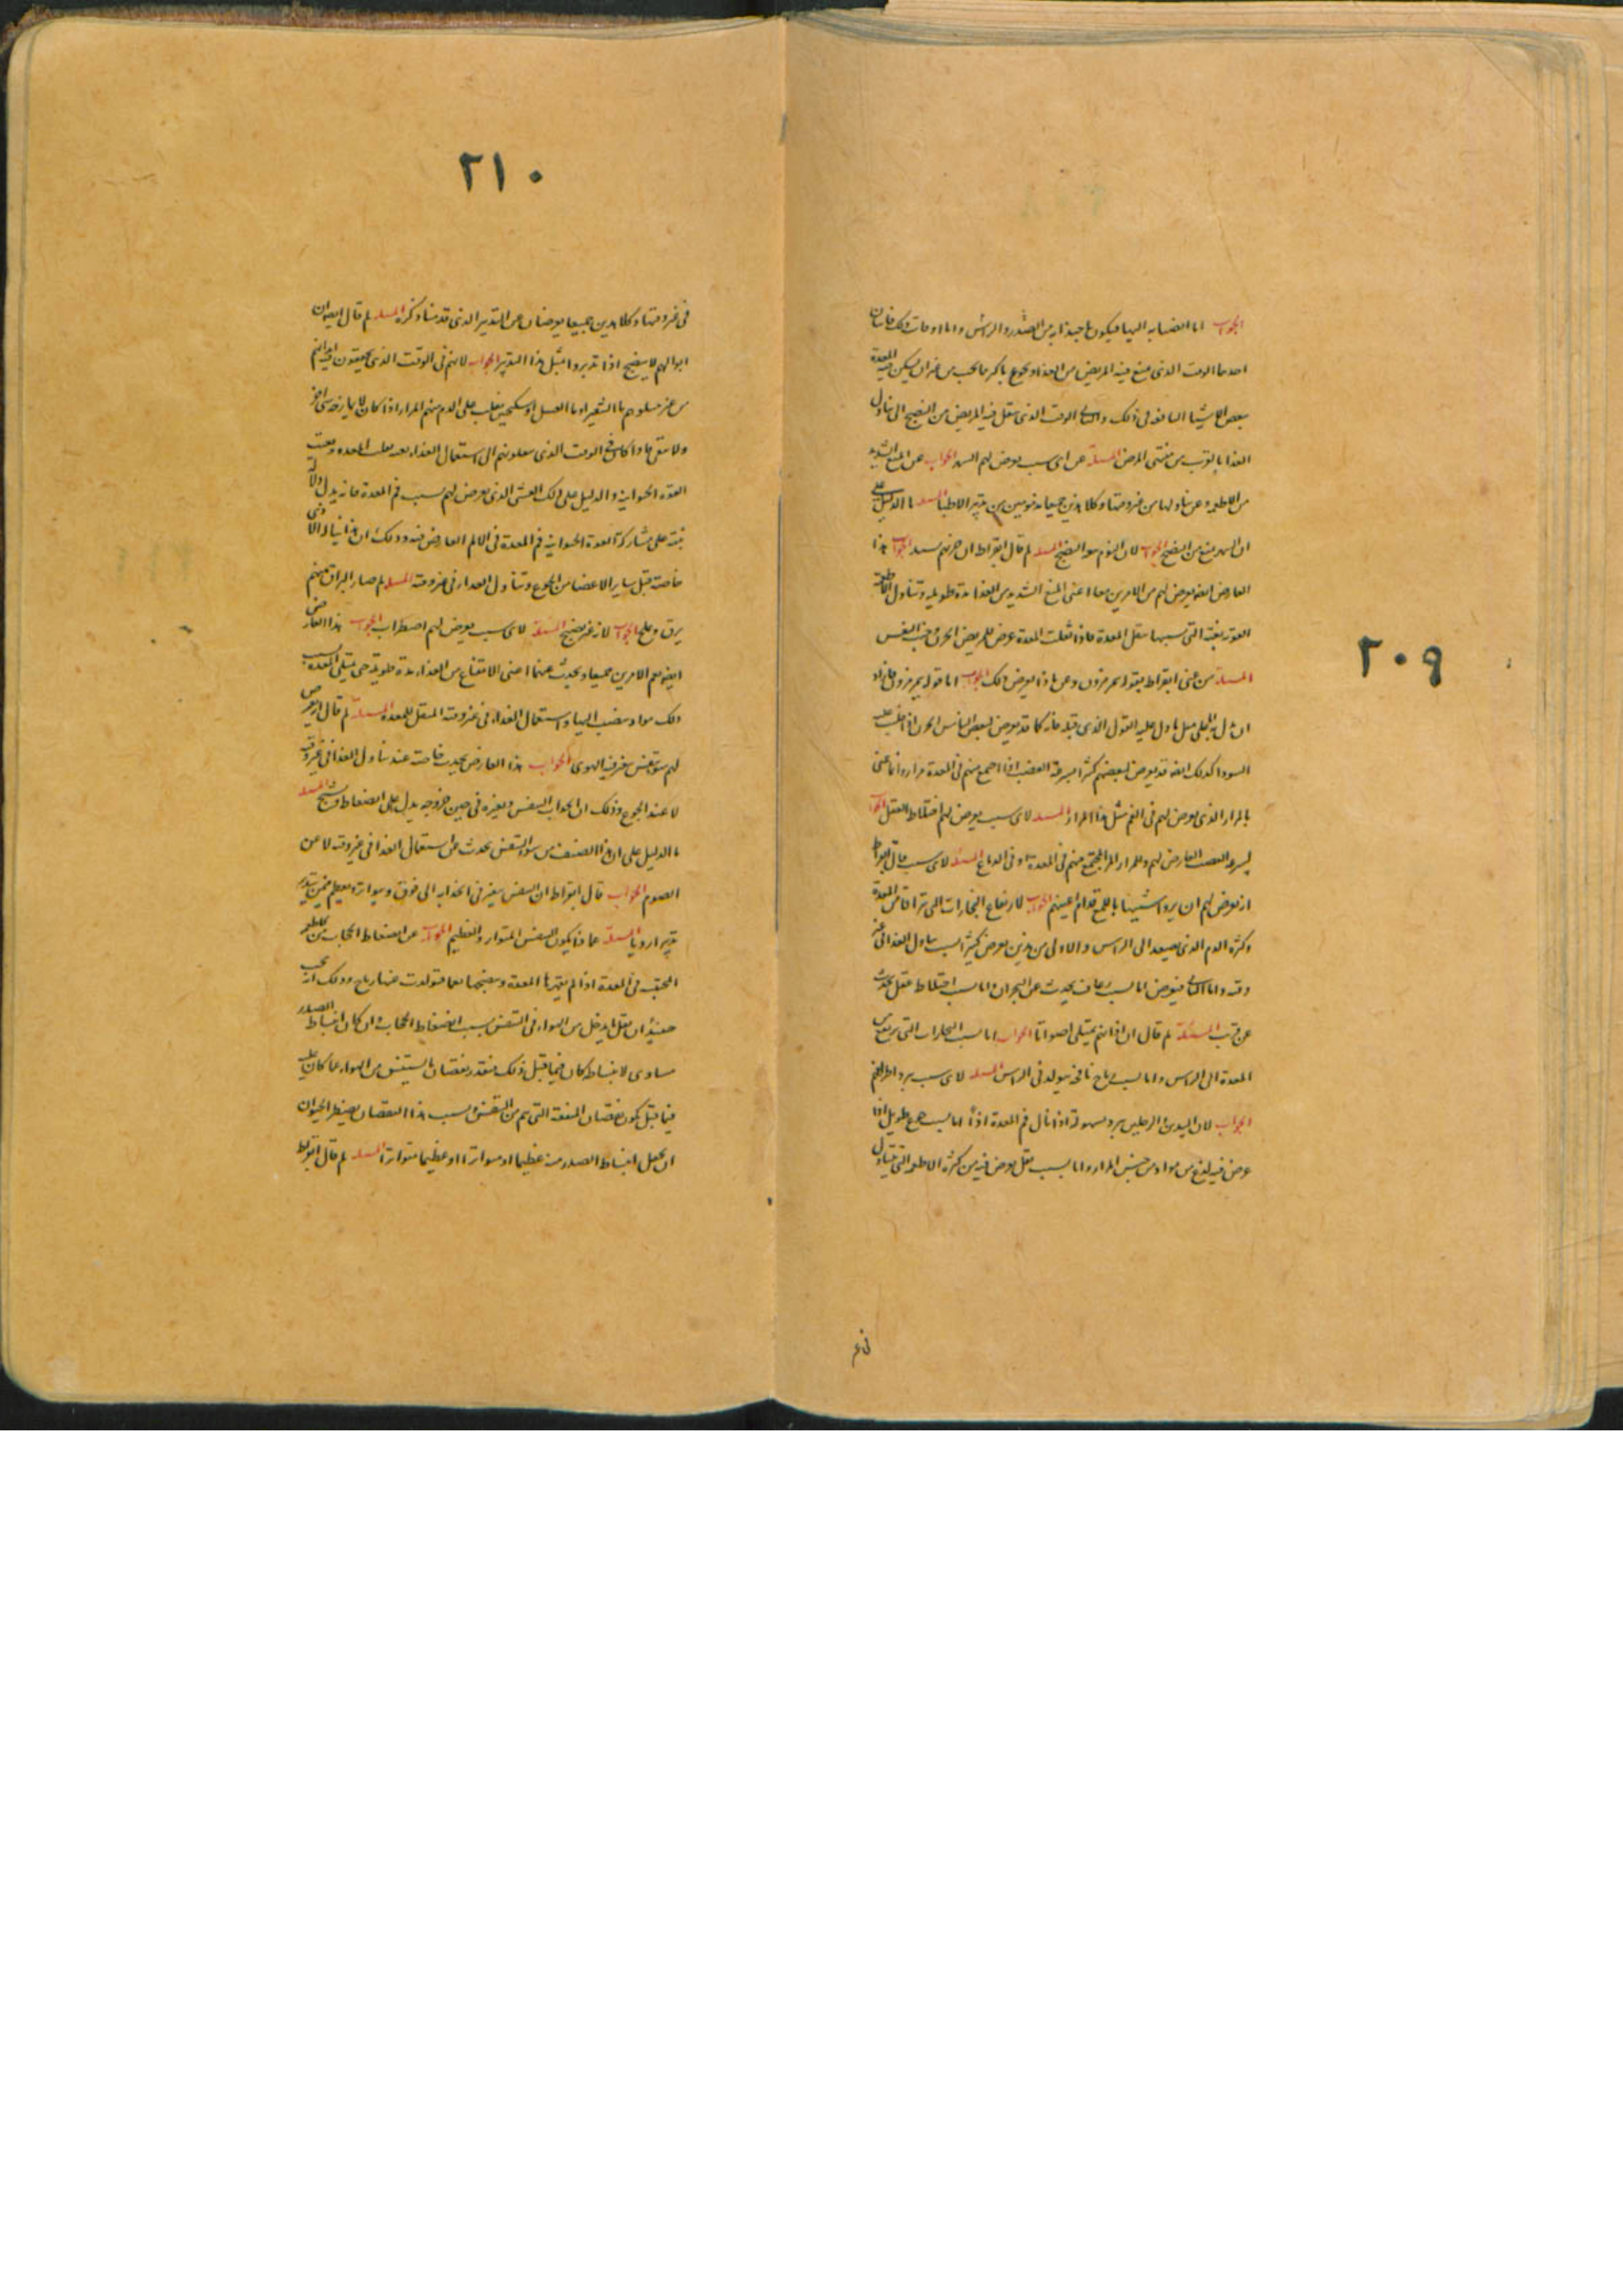 ٢٠٩
الجواب اما انصبابه اليها فيكون باجتذابه من الصدر والراس واما اوقات ذلك فاثنان
احدهما الوقت الذى يمنع فيه المريض من الغذاء ويجوع باكثر مما يجب من غير ان يسكن المعدة
بعض الاشياء النافعة فى ذلك والثانى الوقت الذى ينقل فيه المريض من النضج الى تناول
الغذاء بالقرب من منتهى المرض المسئلة عن اى سبب يعرض لهم السهر الجواب عن المنع الشديد
من الاطعمة وعن تناولها من غير وقتها وكلا هذين جميعا مذمومين من تدبير الاطباء المسئلة ما الدليل على
ان السهر يمنع من النضج الجواب لان النوم هو المنضج المسئلة لم قال ابقراط ان حزنهم شديد الجواب هذا
العارض ايضا يعرض لهم من الامرين معا اعنى المنع الشديد من الغذاء مدة طويلة وتناول الاطعمة
القوية بغتة التى بسببها تثقل المعدة فاذا ثقلت المعدة عرض للمريض الحزن وخبث النفس
المسئلة من عنى ابقراط بقوله يمرمرون وعن ماذا يعرض ذلك الجواب اما قوله يمرمرون فانه
السوداء كذلك ايضا قد يعرض لبعضهم كثيرا سرعة الغضب اذا اجتمع منهم فى المعدة مرار وانما عنى
بالمرار الذى يعرض لهم فى الفم مثل هذا المرار المسئلة لاى سبب يعرض لهم اختلاط العقل الجواب
لسرعة الغضب العارض لهم وللمرار المر المجتمع منهم فى المعدة او فى الدماغ المسئلة لاى سبب قال ابقراط
انه يعرض لهم ان يروا شبيها باللمع قدام اعينهم الجواب لارتفاع البخارات التى تتراقى من المعدة
وكثرة الدم الذى يصعد الى الراس والاولى من هذين يعرض كثيرا بسبب تناول الغذاء فى غير
وقته واما الثانى فيعرض اما بسبب رعاف يحدث عن البحران واما بسبب اختلاط عقل يحدث
عن قرب المسئلة لم قال ان اذانهم تمتلى اصواتا الجواب اما بسبب البخارات التى ترتفع من
المعدة الى الراس واما بسبب رياح نافخة تتولد فى الراس المسئلة لاى سبب تبرد اطرافهم
الجواب لان اليدين والرجلين تبرد بسهولة اذا نال فم المعدة اذى اما بسبب جوع طويل اذا
عرض فيه لذع من مواد من جنس المرار واما بسبب ثقل يعرض فيه من كثرة الاطعمة التى تتناول
فى غير
٢١٠
فى غير وقتها وكلا هذين جميعا يعرضان عن التدبير الذى قدمنا ذكره المسئلة لم قال ايضا ان
ابوالهم لا ينضج اذا تدبروا بمثل هذا التدبير الجواب لانهم فى الوقت الذى يجففون فيه ابدانهم
من غير ان يسقوهم ماء الشعير او ماء العسل او سكنجبين يغلب على الدم منهم المرار اذا كان لا يمازجه شى اخر
القوة الحيوانية والدليل على ذلك الغشى الذى يعرض لهم بسبب فم المعدة فانه يدل دلالة
بينة على مشاركة القوة الحيوانية فم المعدة فى الالم العارض فيه وذلك ان هذا يناله الاذى
خاصة قبل ساير الاعضاء من الجوع وتناول الغذاء فى غير وقته المسئلة لم صار البزاق منهم
يرق ويملح الجواب لانه غير نضيج المسئلة لاى سبب يعرض لهم اضطراب الجواب هذا العارض
ايضا يعم الامرين جميعا ويحدث عنهما اعنى الامتناع من الغذاء مدة طويلة حتى تمتلى المعدة بسبب
ذلك مواد تنصب اليها واستعمال الغذاء فى غير وقته المثقل للمعدة المسئلة لم قال انه يعرض
لهم سوء تنفس يغرف الهوى الجواب هذا العارض يحدث خاصة عند تناول الغذاء فى غير وقته
لا عند الجوع وذلك ان انجذاب النفس وتغيره فى حين خروجه يدل على انضغاط وتشنج المسئلة
ما الدليل على ان هذا الصنف من سوء التنفس يحدث عن استعمال الغذاء فى غير وقته لا عن
الصوم الجواب قال ابقراط ان النفس يتغير فى انجذابه الى فوق ويتواتر ويعظم فيمن يتدبر
تدبيرا رديا المسئلة عما ذا يكون النفس المتواتر والعظيم الجواب عن انضغاط الحجاب من الاطعمة
المحتبسة فى المعدة اذا لم تقهرها المعدة وتنضجها نعما فتولدت عنها رياح وذلك انه يجب
حينئذ ان يقل ما يدخل من الهواء فى التنفس بسبب انضغاط الحجاب وان كان انبساط الصدر
مساوى لانبساطه كان فيما قبل ذلك فبقدر نقصان ما يستنشق من الهواء عما كان عليه
فيما قبل يكون نقصان المنفعة التى تتم من التنفس وبسبب هذا النقصان يضطر الحيوان
ان يجعل انبساط الصدر منه عظيما او متواترا او عظيما متواترا المسئلة لم قال ابقراط